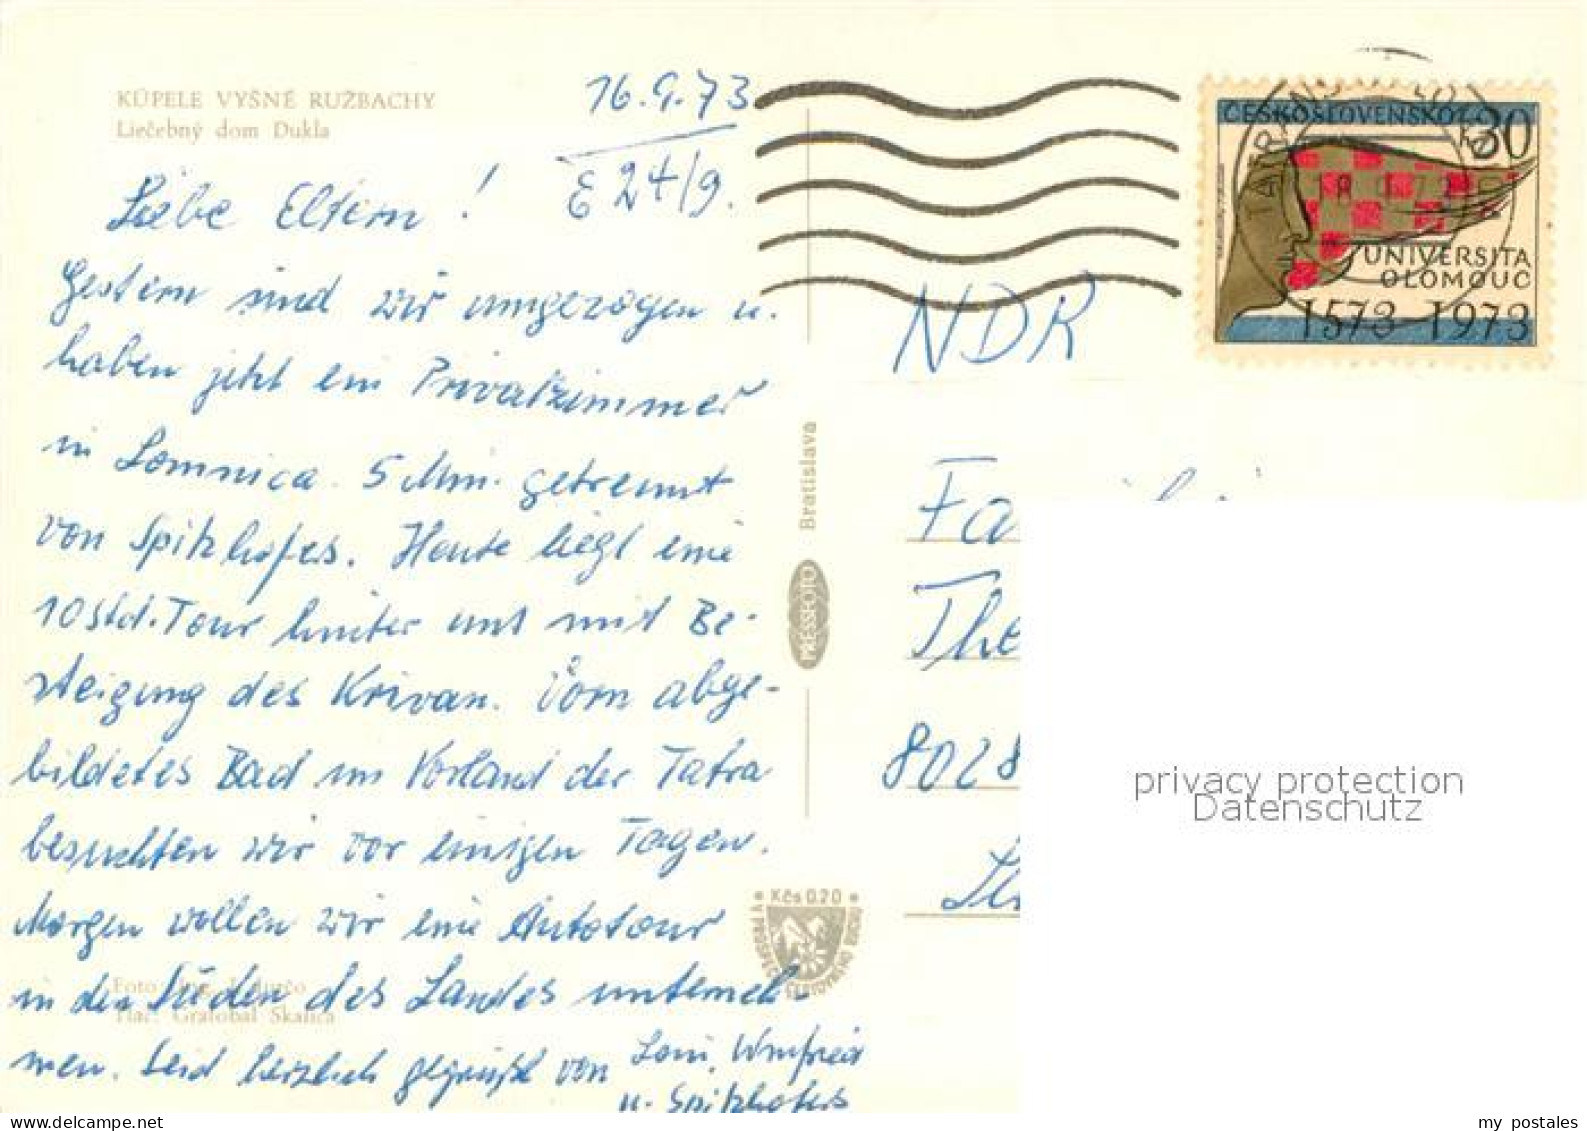 KÚPELE VYŠNÉ RUŽBACHY
Liečebný dom Dukla
16.9.73
E 24/9.
Liebe Eltern!
Gestern sind wir umgezogen u.
haben jetzt ein Privatzimmer
in Lomnica. 5 Min. getrennt
von Spitzhofers. Heute liegt eine
10 Std. Tour hinter uns mit Be-
steigung des Krivan. Vorn abge-
bildetes Bad im Vorland der Tatra
besuchten wir vor einigen Tagen.
Morgen wollen wir eine Autotour
in den Süden des Landes unterneh-
men. Seid herzlich gegrüßt von
Loni, Winfried
u. Spitzhofers
Foto: Ing.
Tlač: Grafobal Skalica
Bratislava
PRESSFOTO
Kčs 0.20
ČESKOSLOVENSKO
30
UNIVERSITA
OLOMOUC
1573-1973
NDR
Fa
The
8028
privacy protection
Datenschutz
my postales